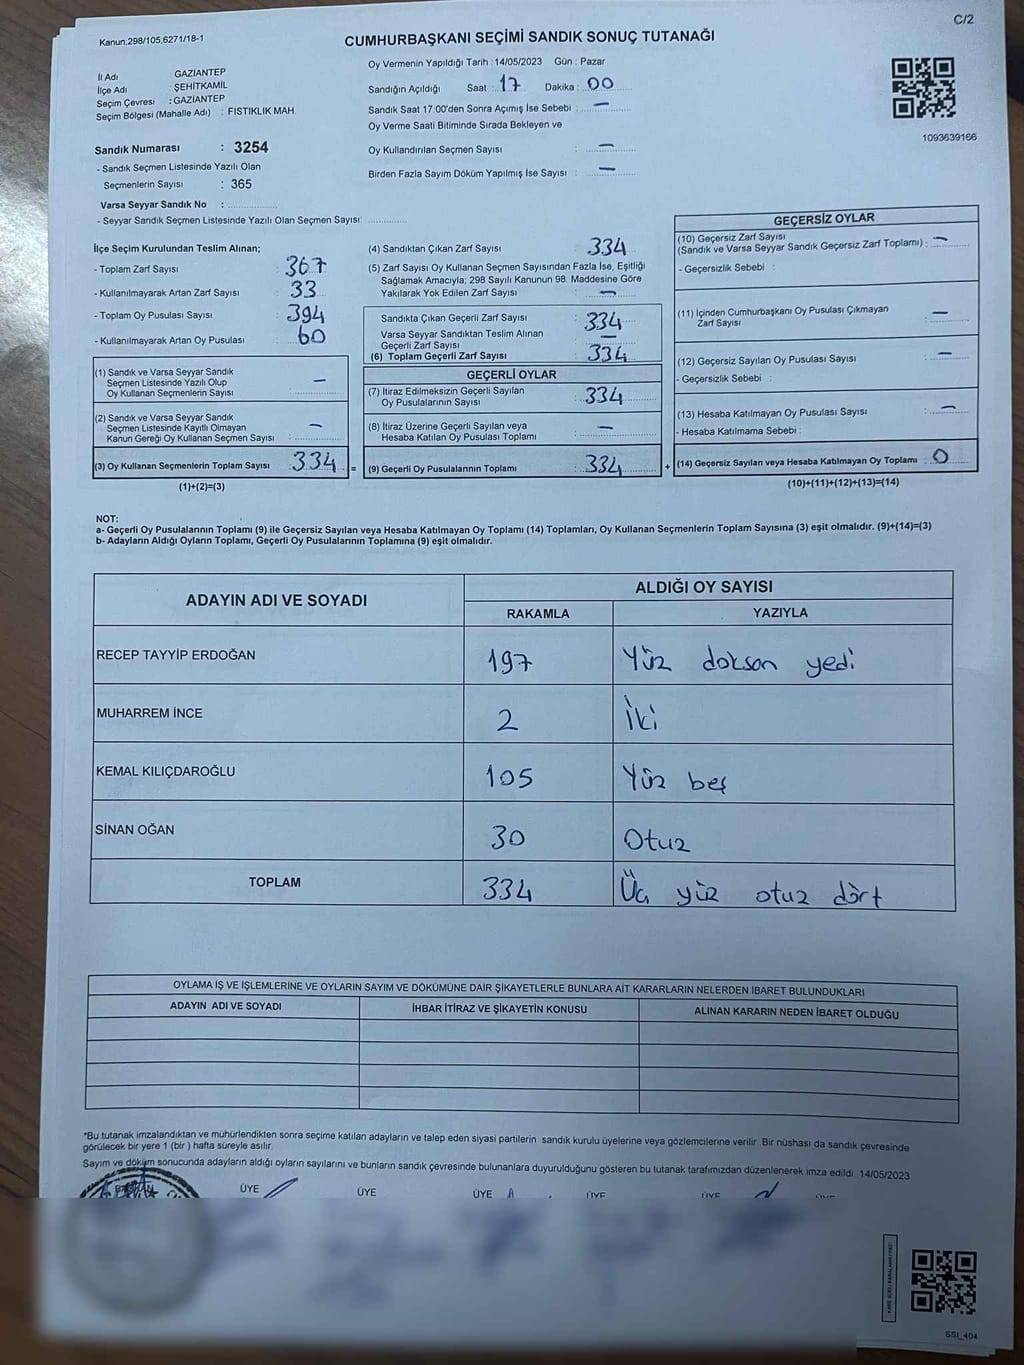 C/2
Kanun;298/105;6271/18-1
CUMHURBAŞKANI SEÇİMİ SANDIK SONUÇ TUTANAĞI
İl Adı GAZİANTEP
İlçe Adı ŞEHİTKAMİL
Seçim Çevresi : GAZİANTEP
Seçim Bölgesi (Mahalle Adı) : FISTIKLIK MAH.
Sandık Numarası : 3254
- Sandık Seçmen Listesinde Yazılı Olan
Seçmenlerin Sayısı : 365
Varsa Seyyar Sandık No :
- Seyyar Sandık Seçmen Listesinde Yazılı Olan Seçmen Sayısı:
Oy Vermenin Yapıldığı Tarih : 14/05/2023 Gün : Pazar
Sandığın Açıldığı Saat : 17 Dakika : 00
Sandık Saat 17.00'den Sonra Açımış İse Sebebi : —
Oy Verme Saati Bitiminde Sırada Bekleyen ve
Oy Kullandırılan Seçmen Sayısı : —
Birden Fazla Sayım Döküm Yapılmış İse Sayısı : —
1093639166
İlçe Seçim Kurulundan Teslim Alınan;
- Toplam Zarf Sayısı : 367
- Kullanılmayarak Artan Zarf Sayısı : 33
- Toplam Oy Pusulası Sayısı : 394
- Kullanılmayarak Artan Oy Pusulası : 60
(1) Sandık ve Varsa Seyyar Sandık
Seçmen Listesinde Yazılı Olup
Oy Kullanan Seçmenlerin Sayısı : —
(2) Sandık ve Varsa Seyyar Sandık
Seçmen Listesinde Kayıtlı Olmayan
Kanun Gereği Oy Kullanan Seçmen Sayısı : —
(3) Oy Kullanan Seçmenlerin Toplam Sayısı : 334 =
(1)+(2)=(3)
(4) Sandıktan Çıkan Zarf Sayısı : 334
(5) Zarf Sayısı Oy Kullanan Seçmen Sayısından Fazla İse, Eşitliği
Sağlamak Amacıyla; 298 Sayılı Kanunun 98. Maddesine Göre
Yakılarak Yok Edilen Zarf Sayısı : —
Sandıkta Çıkan Geçerli Zarf Sayısı : 334
Varsa Seyyar Sandıktan Teslim Alınan
Geçerli Zarf Sayısı : —
(6) Toplam Geçerli Zarf Sayısı : 334
GEÇERLİ OYLAR
(7) İtiraz Edilmeksizin Geçerli Sayılan
Oy Pusulalarının Sayısı : 334
(8) İtiraz Üzerine Geçerli Sayılan veya
Hesaba Katılan Oy Pusulası Toplamı : —
(9) Geçerli Oy Pusulalarının Toplamı : 334 +
GEÇERSİZ OYLAR
(10) Geçersiz Zarf Sayısı
(Sandık ve Varsa Seyyar Sandık Geçersiz Zarf Toplamı) : —
- Geçersizlik Sebebi :
(11) İçinden Cumhurbaşkanı Oy Pusulası Çıkmayan
Zarf Sayısı : —
(12) Geçersiz Sayılan Oy Pusulası Sayısı : —
- Geçersizlik Sebebi :
(13) Hesaba Katılmayan Oy Pusulası Sayısı : —
- Hesaba Katılmama Sebebi :
(14) Geçersiz Sayılan veya Hesaba Katılmayan Oy Toplamı : 0
(10)+(11)+(12)+(13)=(14)
NOT:
a- Geçerli Oy Pusulalarının Toplamı (9) ile Geçersiz Sayılan veya Hesaba Katılmayan Oy Toplamı (14) Toplamları, Oy Kullanan Seçmenlerin Toplam Sayısına (3) eşit olmalıdır. (9)+(14)=(3)
b- Adayların Aldığı Oyların Toplamı, Geçerli Oy Pusulalarının Toplamına (9) eşit olmalıdır.
ADAYIN ADI VE SOYADI ALDIĞI OY SAYISI
RAKAMLA YAZIYLA
RECEP TAYYİP ERDOĞAN 197 Yüz doksan yedi
MUHARREM İNCE 2 İki
KEMAL KILIÇDAROĞLU 105 Yüz beş
SİNAN OĞAN 30 Otuz
TOPLAM 334 Üç yüz otuz dört
OYLAMA İŞ VE İŞLEMLERİNE VE OYLARIN SAYIM VE DÖKÜMÜNE DAİR ŞİKAYETLERLE BUNLARA AİT KARARLARIN NELERDEN İBARET BULUNDUKLARI
ADAYIN ADI VE SOYADI İHBAR İTİRAZ VE ŞİKAYETİN KONUSU ALINAN KARARIN NEDEN İBARET OLDUĞU
*Bu tutanak imzalandıktan ve mühürlendikten sonra seçime katılan adayların ve talep eden siyasi partilerin sandık kurulu üyelerine veya gözlemcilerine verilir. Bir nüshası da sandık çevresinde
görülecek bir yere 1 (bir ) hafta süreyle asılır.
Sayım ve döküm sonucunda adayların aldığı oyların sayılarını ve bunların sandık çevresinde bulunanlara duyurulduğunu gösteren bu tutanak tarafımızdan düzenlenerek imza edildi. 14/05/2023
BAŞKAN ÜYE ÜYE ÜYE ÜYE ÜYE ÜYE
SSI_404